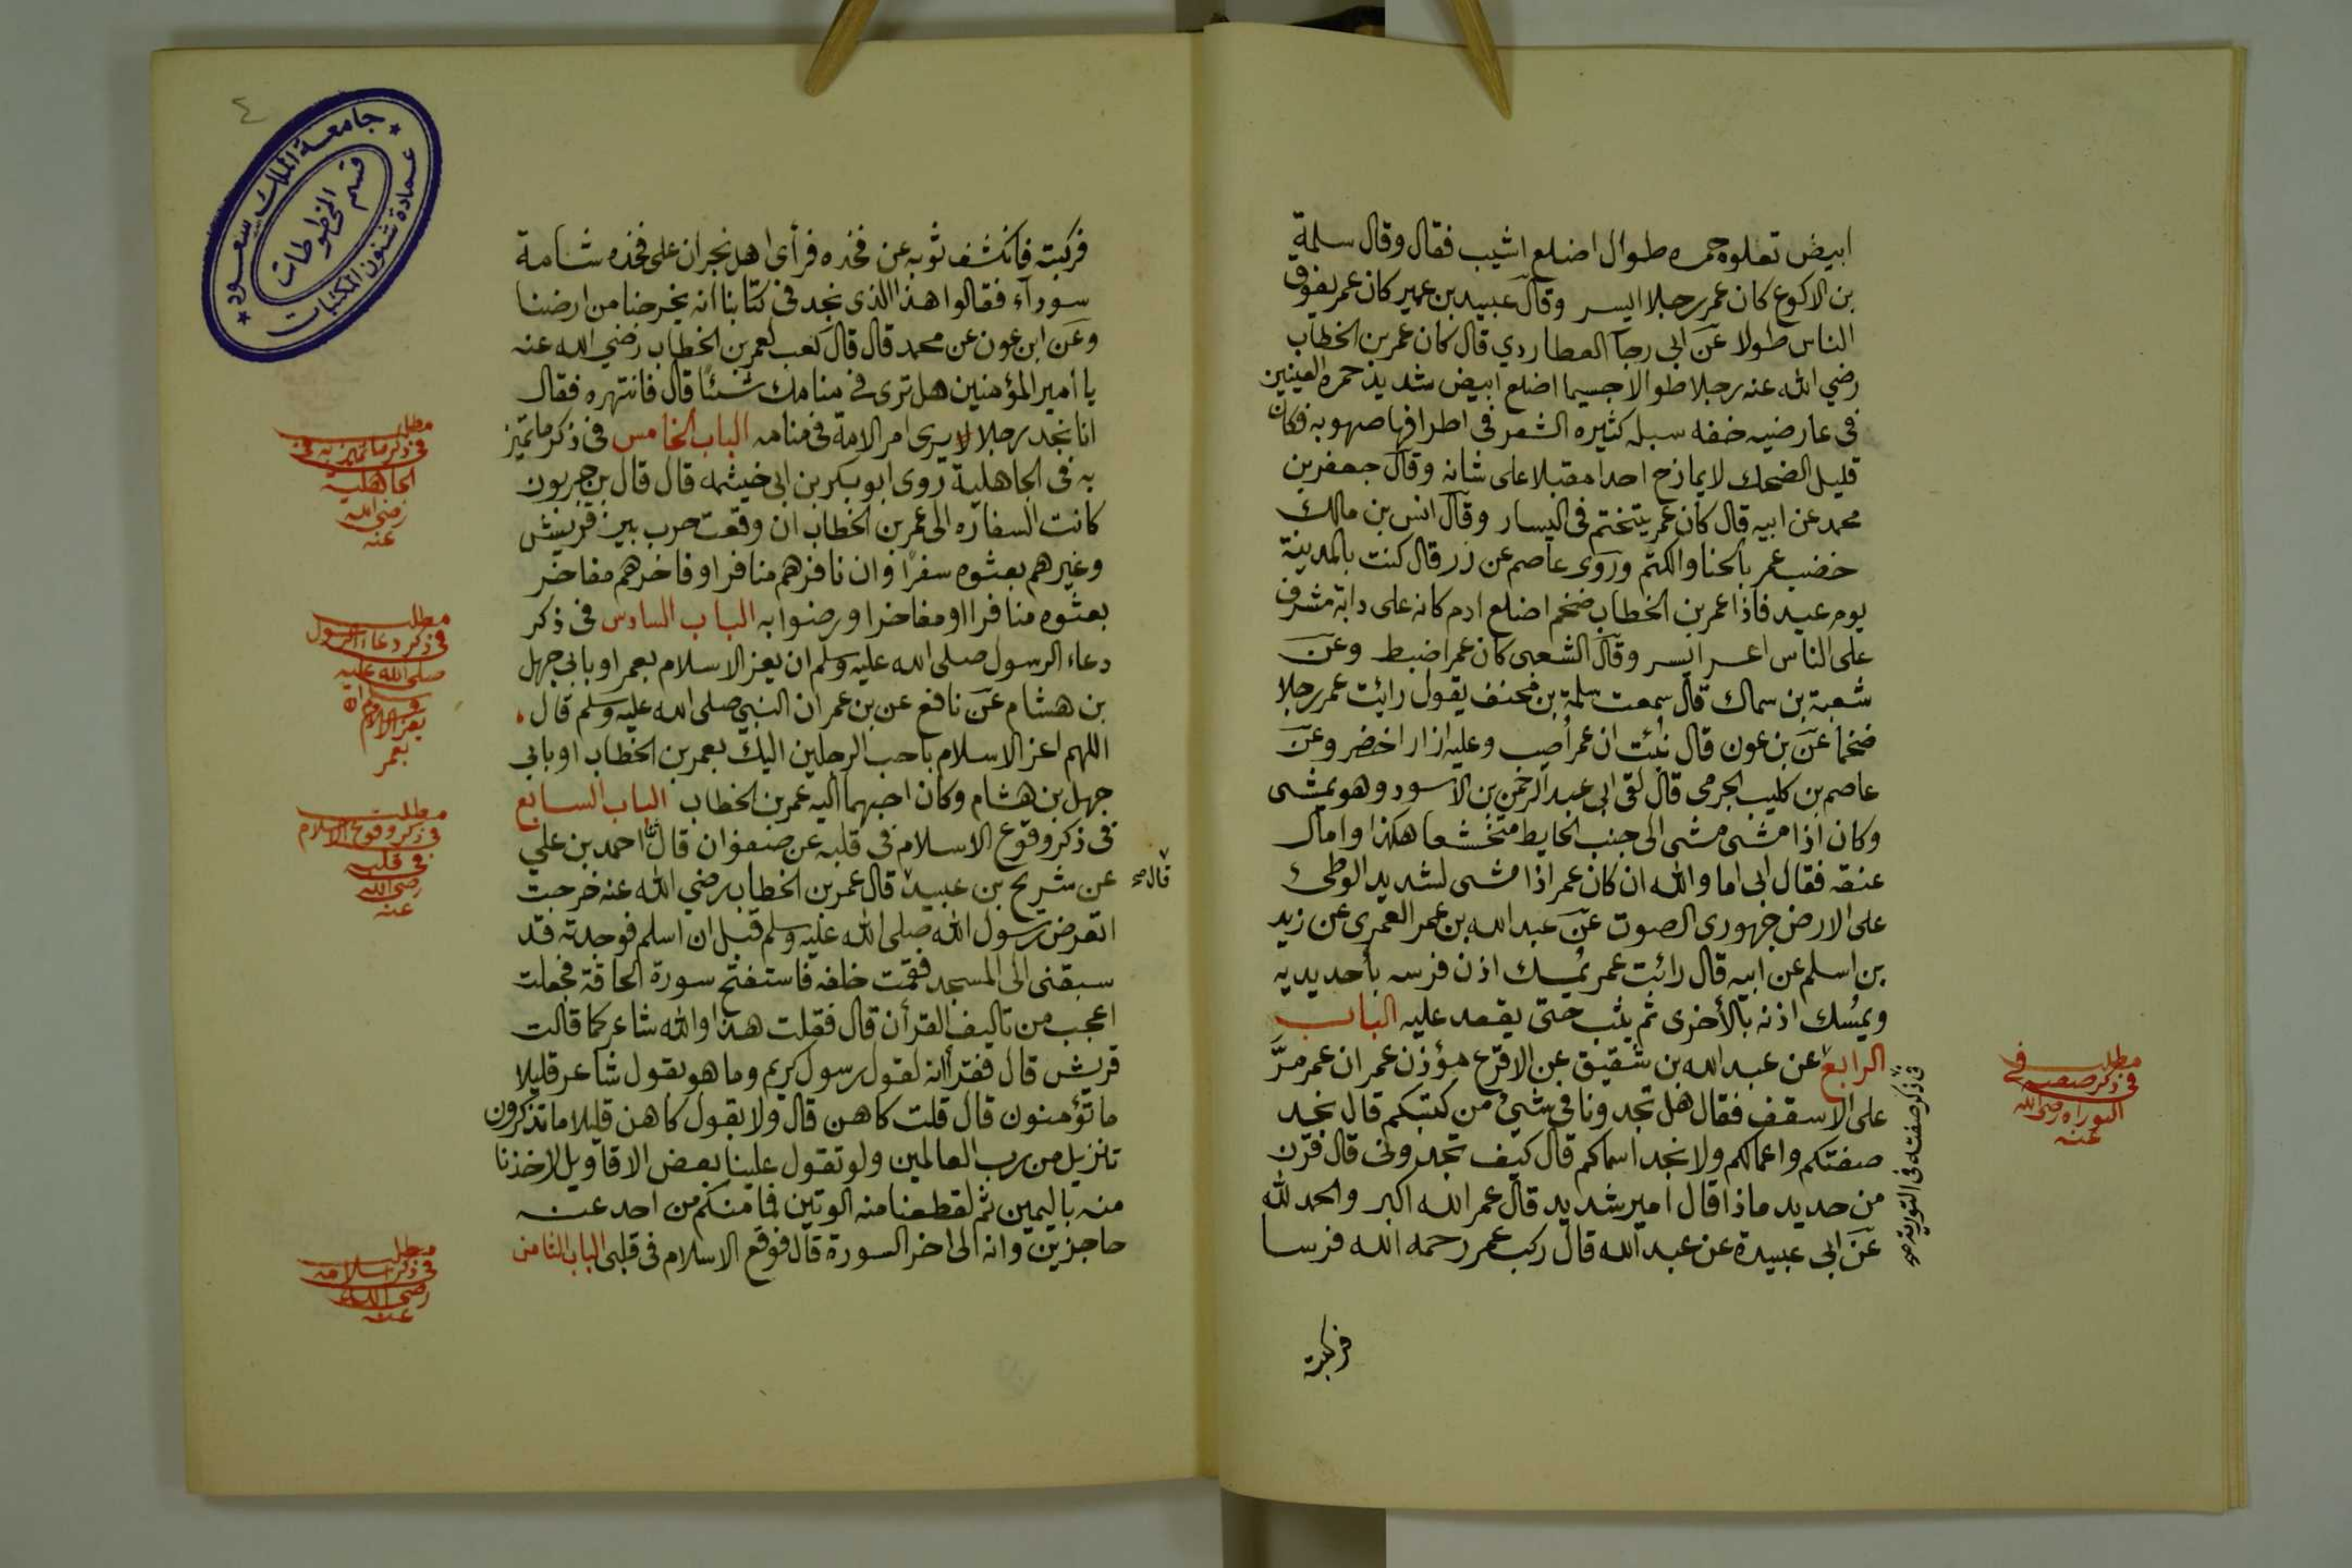 ابيض تعلوه حمره طوال اضلع اشيب فقال وقال سلمة
بن الاكوع كان عمر رجلا ايسر وقال عبيد بن عمير كان عمر يفوق
الناس طولا عن ابي رجآ العطاردي قال كان عمر بن الخطاب
رضي الله عنه رجلا طوالا جسيما اضلع ابيض شديد حمرة العينين
فى عارضيه خفه سبله كثيره الشعر فى اطرافها صهوبه فكان
قليل الضحك لا يمازح احدا مقبلا على شانه وقال جعفر بن
محمد عن ابيه قال كان عمر يتختم فى اليسار وقال انس بن مالك
خضب عمر بالحنا والكتم وروى عاصم عن زر قال كنت بالمدينة
يوم عيد فاذا عمر بن الخطاب ضخم اضلع ادم كانه على دابة مشرف
على الناس اعسر ايسر وقال الشعبى كان عمر اضبط وعن
شعبة بن سماك قال سمعت سلمة بن مخنف يقول رايت عمر رجلا
ضخما عن بن عون قال نبئت ان عمر أصيب وعليه ازار اخضر وعن
عاصم بن كليب الجرمى قال لقى ابى عبد الرحمن بن الاسود وهو يمشى
وكان اذا مشى مشى الى جنب الحايط متخشعا هكذا وامال
عنقه فقال ابى اما والله ان كان عمر اذا مشى لشديد الوطى
على الارض جهورى الصوت عن عبد الله بن عمر العمرى عن زيد
بن اسلم عن ابيه قال رائت عمر يمسك اذن فرسه بأحد يديه
ويمسك اذنه بالأخرى ثم يثب حتى يقعد عليه الباب
الرابع عن عبد الله بن شقيق عن الاقرع مؤذن عمر ان عمر مرَّ
على الاسقف فقال هل تجدونا فى شئ من كتبكم قال نجد
صفتكم واعمالكم ولا نجد اسماكم قال كيف تجدونى قال قرن
من حديد ماذا قال امير شديد قال عمر الله اكبر والحمد لله
عن ابي عبيدة عن عبد الله قال ركب عمر رحمه الله فرسا
فركبته
فى ذكر صفته فى التورية صح
مطلب
فى ذكر صفته فى
التوراه رضى الله
عنه
٤
جامعة الملك سعود
قسم المخطوطات
عمادة شئون المكتبات
فركبته فانكشف ثوبه عن فخذه فرأى اهل نجران على فخذه شامة
سودآء فقالوا هذا الذى نجد فى كتابنا انه يخرجنا من ارضنا
وعن ابن عون عن محمد قال قال كعب لعمر بن الخطاب رضي الله عنه
يا أمير المؤمنين هل ترى فى منامك شئا قال فانتهره فقال
انا نجد رجلا يرى امر الامة فى منامه الباب الخامس فى ذكر ما تميز
به فى الجاهلية روى ابو بكر بن ابى خيثمه قال قال بن جربون
كانت السفاره الى عمر بن الخطاب ان وقعت حرب بين قريش
وغيرهم بعثوه سفرا وان نافرهم منافر او فاخرهم مفاخر
بعثوه منافرا او مفاخرا ورضوا به الباب السادس فى ذكر
دعاء الرسول صلى الله عليه وسلم ان يعز الاسلام بعمر او بابى جهل
بن هشام عن نافع عن بن عمر ان النبي صلى الله عليه وسلم قال
اللهم اعز الاسلام باحب الرجلين اليك بعمر بن الخطاب او بابى
جهل بن هشام وكان احبهما اليه عمر بن الخطاب الباب السابع
فى ذكر وقوع الاسلام فى قلبه عن صفوان قال احمد بن علي
عن شريح بن عبيد قال عمر بن الخطاب رضي الله عنه خرجت
قال صح
اتعرض رسول الله صلى الله عليه وسلم قبل ان اسلم فوجدته قد
سبقنى الى المسجد فقمت خلفه فاستفتح سورة الحاقة فجعلت
اعجب من تاليف القرأن قال فقلت هذا والله شاعر كما قالت
قريش قال فقرأ انه لقول رسول كريم وما هو بقول شاعر قليلا
ما تؤمنون قال قلت كاهن قال ولا بقول كاهن قليلا ما تذكرون
تنزيل من رب العالمين ولو تقول علينا بعض الاقاويل لاخذنا
منه باليمين ثم لقطعنا منه الوتين فما منكم من احد عنه
حاجزين وانه الى اخر السورة قال فوقع الاسلام فى قلبى الباب الثامن
مطلب
فى ذكر ما تميز به فى
الجاهلية
رضى الله
عنه
مطلب
فى ذكر دعاء الرسول
صلى الله عليه
وسلم ان
يعز الاسلام
بعمر
مطلب
فى ذكر وقوع الاسلام
فى قلبه
رضى الله
عنه
مطلب
فى ذكر اسلامه
رضى الله
عنه